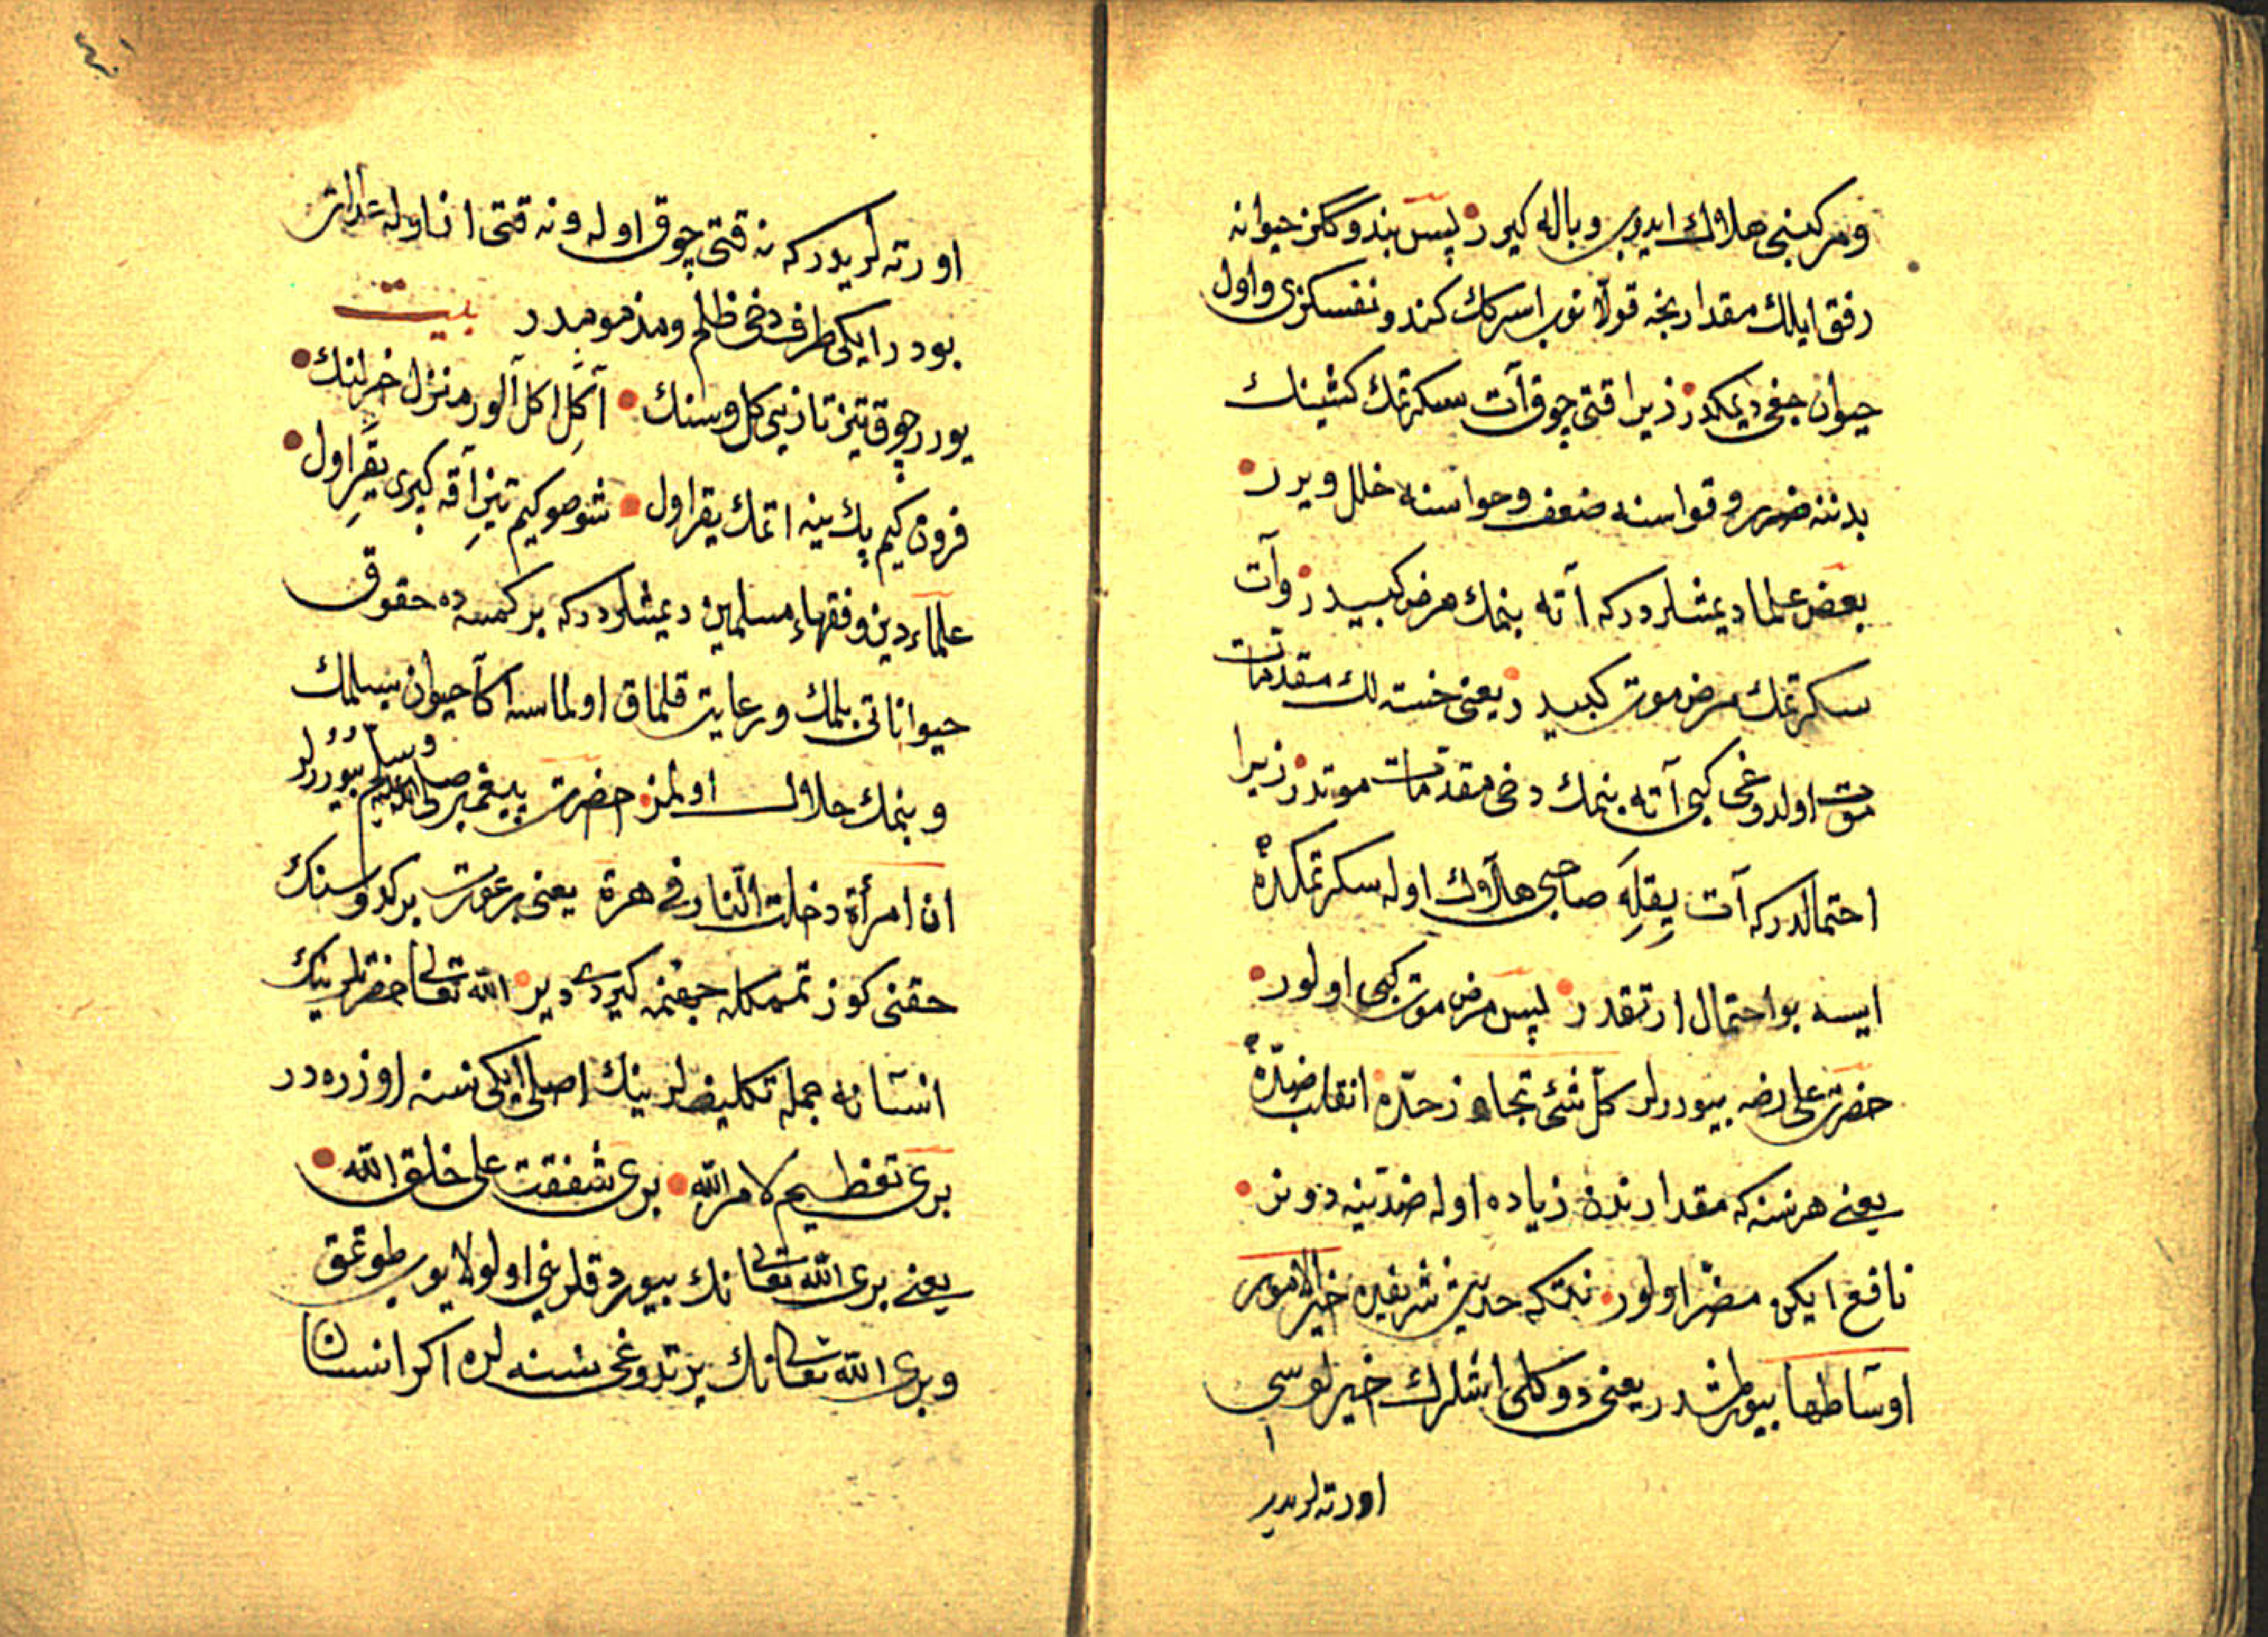 ومركبنى هلاك ايدوب وباله كيرر پس بندوكڭز حيوانه
رفق ايلك مقدارنجه قوللانوب اسركك كندو نفسكزى واول
حيوان جغى ديمكدر زيرا قتى چوق آت سكرتمك كشينك
بدننه ضرر وقواسنه ضعف وحواسنه خلل ويرر
بعض علما ديمشلردركه آته بنمك مرض كبيدر وآت
سكرتمك مرض موت كبيدر يعنى خسته لك مقدمات
موت اولدوغى كبى آته بنمك دخى مقدمات موتدر زيرا
احتمالدركه آت يقله صاحبى هلاك اوله سكرتمكده
ايسه بو احتمال ارتقدر پس مرض موت كبى اولور
حضرت على رضه بيوررلر كل شئ تجاوز حده انقلب ضده
يعنى هر نسنه كه مقدارندن زياده اوله ضدينه دونر
نافع ايكن مضر اولور نتكه حديث شريفده خير الامور
اوساطها بيورلمشدر يعنى دوكلى ايشلرك خيرلوسى
اورته لريدر
اورته لريدركه نه قتى چوق اوله ونه قتى از اوله عدالت
بودر ايكى طرف دخى ظلم ومذمومدر بيت
يورر چوق تيز تازيى كل وسنك آكل اكل آلور منزل خرلنك
فرون كيم پك ينه اتمك يقر اول شو صو كيم تيز آقه كپرى يقر اول
علماء دين وفقهاء مسلمين ديمشلردركه بر كمسه ده حقوق
حيواناتى بلمك ورعايت قلماق اولماسه اكا حيوان بسلمك
وبنمك حلال اولمز حضرت پيغمبر صلى الله عليه وسلم بيوررلر
ان امرأة دخلت النار فى هرة يعنى بر عورت بر كدوسنك
حقنى كوزتمكله جهنمه كيردى دير الله تعالى حضرتلرينك
انسانه جمله تكليفلرينك اصلى ايكى نسنه اوزره در
برى تعظيم لامر الله برى شفقت على خلق الله
يعنى برى الله تعالى نك بيوردقلرينى اولولايوب طوتمق
وبرى الله تعالى نك يرتدوغى نسنه لره اكر انسان